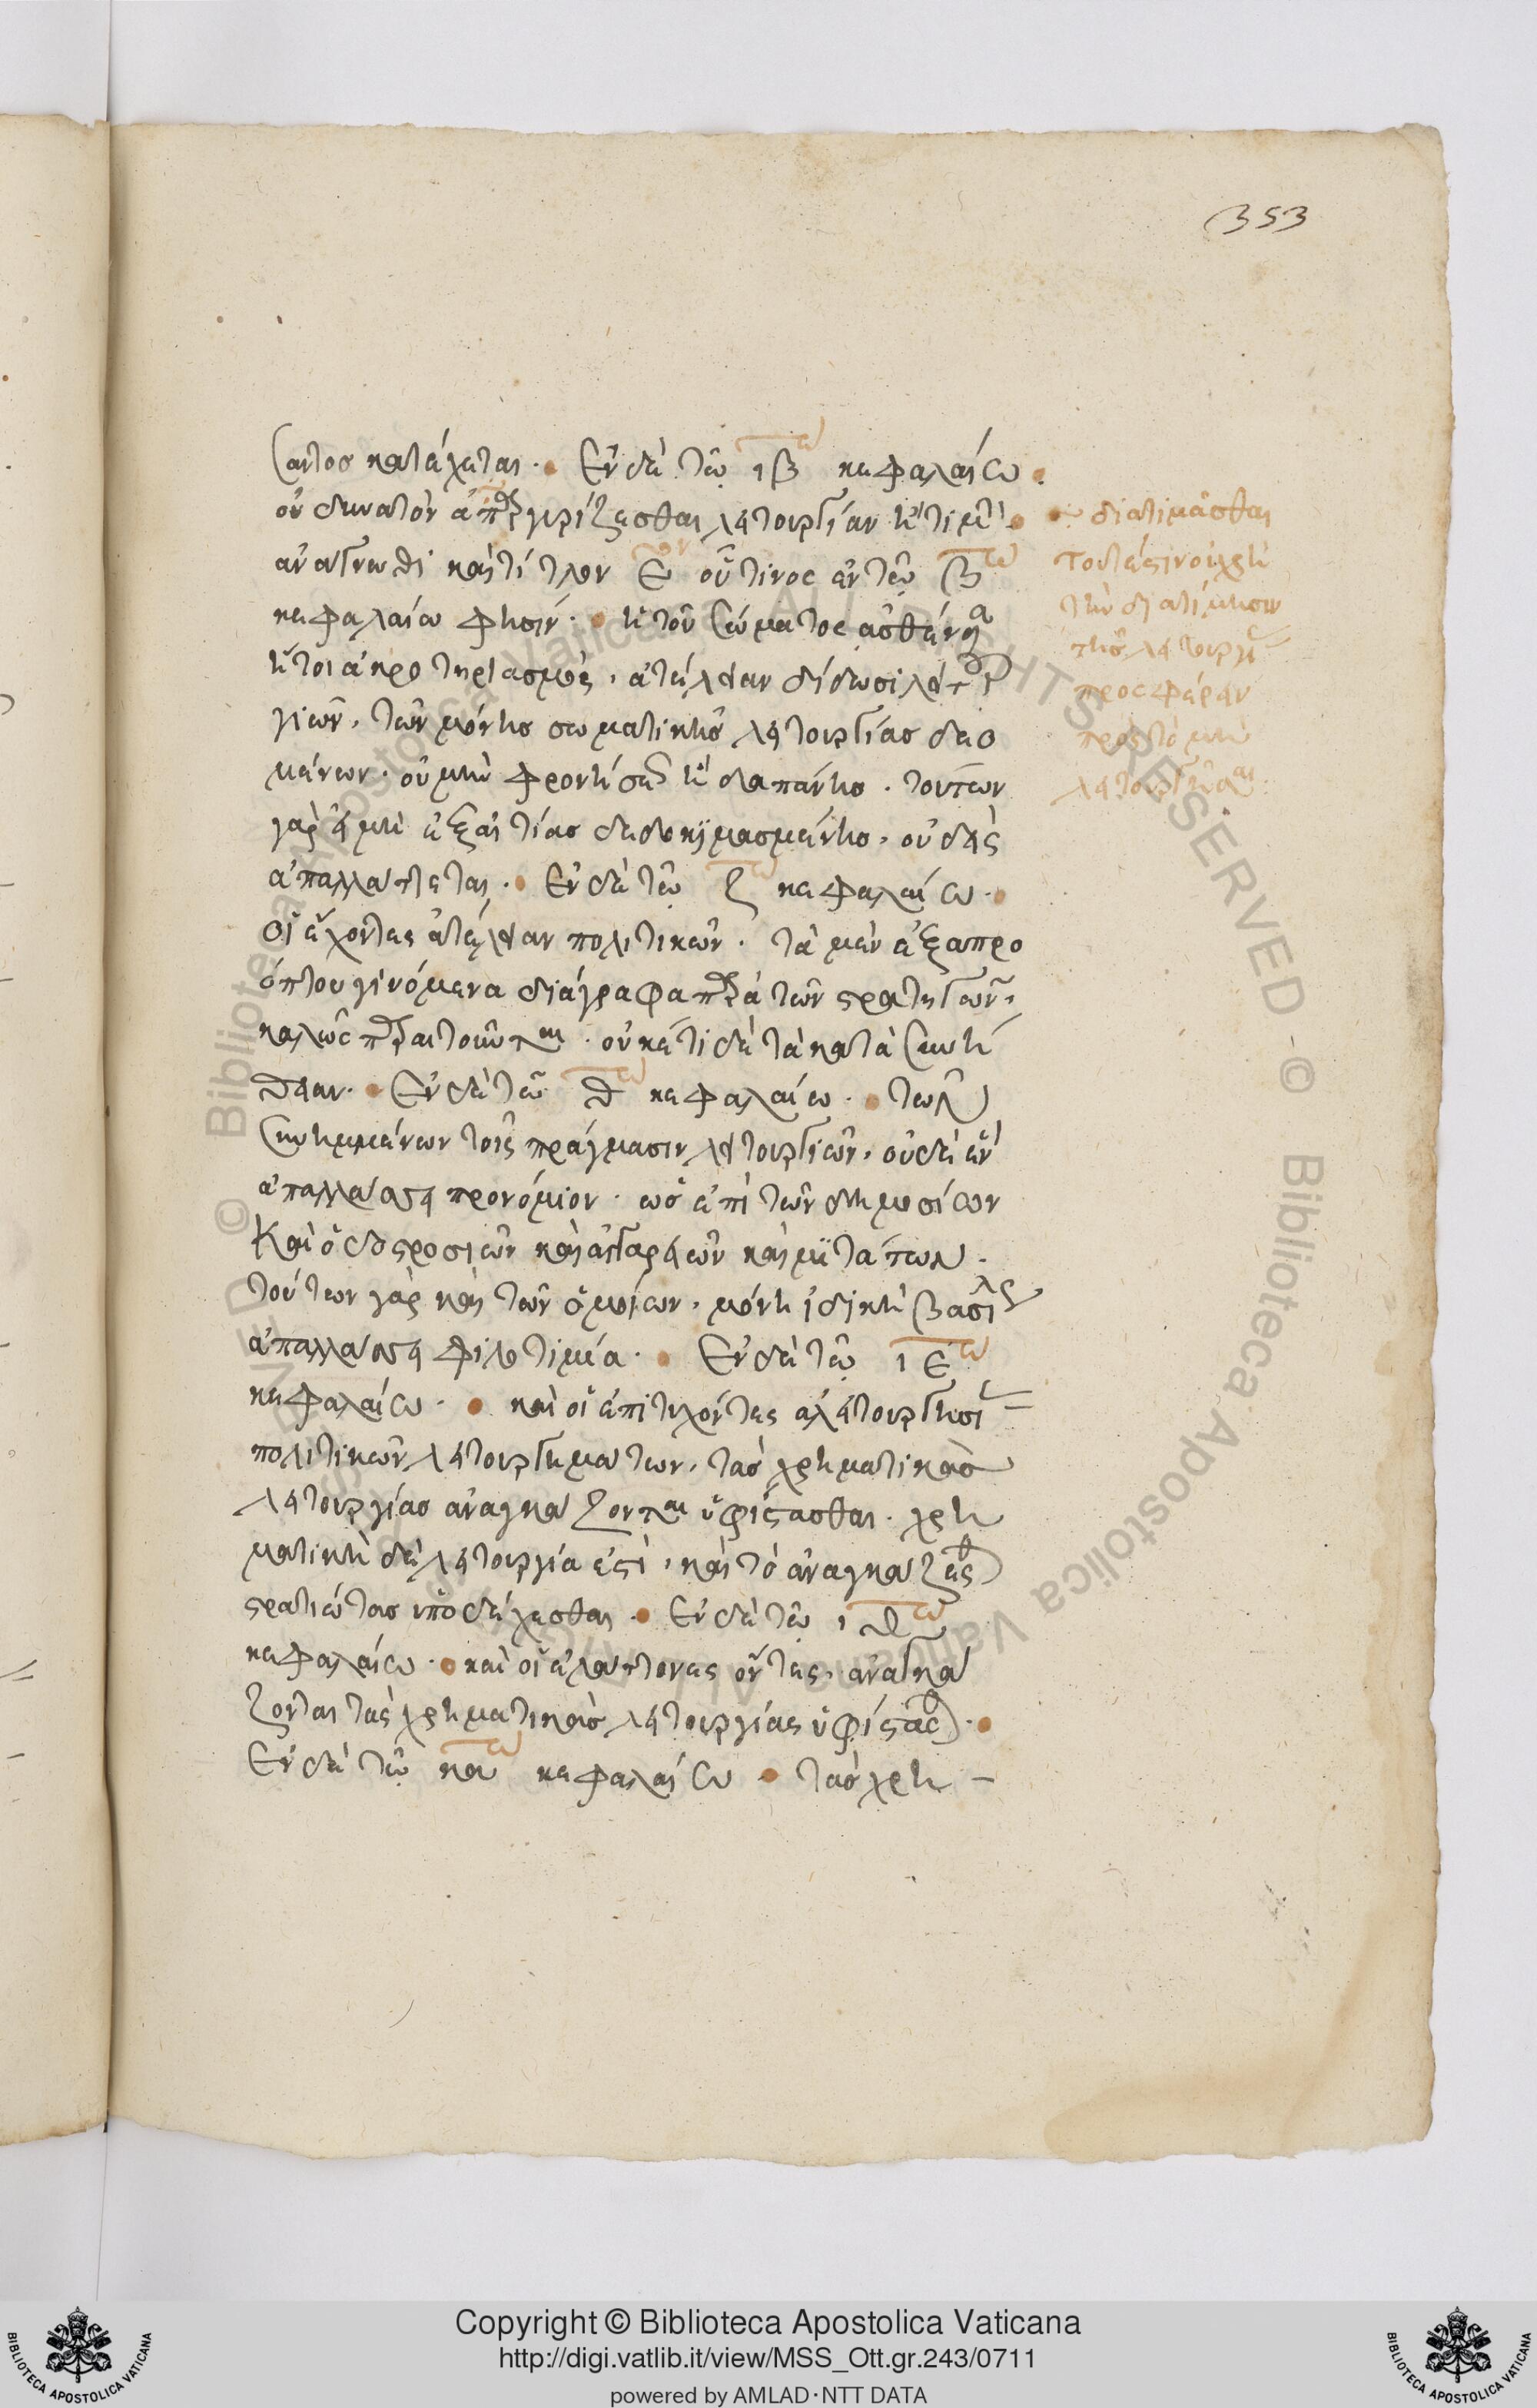 353
σαντος κατέχεται· Ἐν δὲ τῷ ιβω κεφαλαίω·
οὐ δυνατὸν ἀργυρίζεσθαι λειτουργίαν
ἀνάγνωθι καὶ τίτλον ε οὗτινος ἐν τῷ βω
κεφαλαίω φησίν· ἡ τοῦ σώματος ἀσθένεια
ἤτοι ἀκρωτηριασμὸς, ἀτέλειαν δίδωσι λειτουρ
γιῶν, τῶν μόνης σωματικῆς λειτουργίας δεο
μένων· οὐ μὴν φροντίδος ἢ δαπάνης· τούτων
γὰρ εἰ μὴ ἐξ αἰτίας δεδοκιμασμένης, οὐδεὶς
ἀπαλλάττεται· Ἐν δὲ τῷ ζω κεφαλαίω·
οἱ ἔχοντες ἀτέλειαν πολιτικῶν· τὰ μὲν ἐξ ἀπρο
όπτου γινόμενα διάγραφα παρὰ τῶν στρατηγῶν,
καλῶς παραιτοῦνται· οὐκέτι δὲ τὰ κατὰ συνή
θειαν· Ἐν δὲ τῷ θω κεφαλαίω· τῶν
συνημμένων τοῖς πράγμασιν λειτουργιῶν, οὐδὲ ἓν
ἀπαλλάσσει προνόμιον· ὡς ἐπὶ τῶν δημοσίων
καὶ ὁδοστρωσιῶν καὶ ἀγγαρειῶν καὶ μιτάτων·
τούτων γὰρ καὶ τῶν ὁμοίων, μόνη ἰδικὴ βασιλέως
ἀπαλλάσσει φιλοτιμία· Ἐν δὲ τῷ ιεω
κεφαλαίω· καὶ οἱ ἐπιτυχόντες ἀλειτουργησίαν
πολιτικῶν λειτουργημάτων, τὰς χρηματικὰς
λειτουργίας ἀναγκάζονται ὑφίστασθαι· χρη
ματικὴ δὲ λειτουργία ἐστὶ, καὶ τὸ ἀναγκάζεσθαι
στρατιώτας ὑποδέχεσθαι· Ἐν δὲ τῷ ιθω
κεφαλαίω· καὶ οἱ ἐλάττονες ὄντες, ἀναγκά
ζονται τὰς χρηματικὰς λειτουργίας ὑφίστασθαι·
Ἐν δὲ τῷ καω κεφαλαίω· τὰς χρη-
διατιμᾶσθαι
τουτέστιν οὐ χρὴ
τὴν διατίμησιν
τῆς λειτουργίας
προσφέρειν
πρὸς τὸ μὴ
λειτουργῆσαι
Copyright © Biblioteca Apostolica Vaticana
http://digi.vatlib.it/view/MSS_Ott.gr.243/0711
powered by AMLAD·NTT DATA
BIBLIOTECA APOSTOLICA VATICANA
BIBLIOTECA APOSTOLICA VATICANA